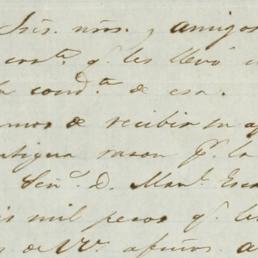 Srs. nros. y amigos
carta. q. les llevó
la cond.ta de esa.
amos de recibir su ap
antigua razon p.r la
Señ.r D. Man.l Esca
is mil pesos q. le
s de V.s afmos. a